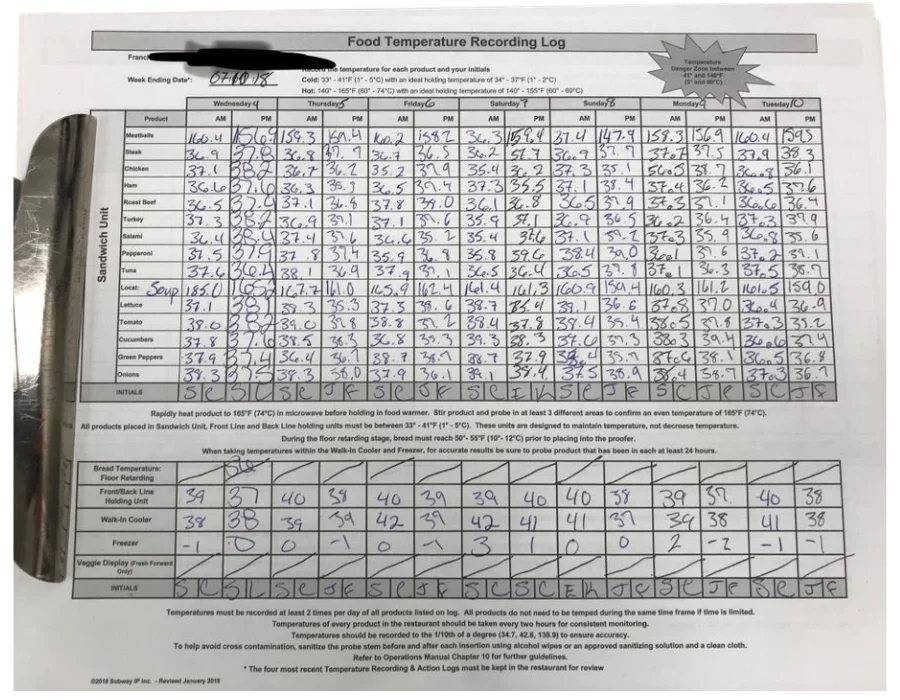 Food Temperature Recording Log
Record the temperature for each product and your initials
Week Ending Date*:
Cold: 33° - 41°F (1° - 5°C) with an ideal holding temperature of 34° - 37°F (1° - 2°C)
Hot: 140° - 165°F (60° - 74°C) with an ideal holding temperature of 140° - 155°F (60° - 69°C)
Temperature
Danger Zone between
41° and 140°F
(5° and 60°C)
Wednesday 4 Thursday 5 Friday 6 Saturday 7 Sunday 8 Monday 9 Tuesday 10
Product AM PM AM PM AM PM AM PM AM PM AM PM AM PM
Sandwich Unit
Meatballs 160.4 159.3 160.2 36.3 159.4 37.4 147.9 158.3 156.9 160.4
Steak 36.9 37.8 36.8 37.7 36.7 36.5 36.2 36.9 37.7 37.5 37.9 38.3
Chicken 37.1 38.2 36.7 36.2 35.2 37.9 35.4 36.2 37.3 35.1 38.7 36.8 36.1
Ham 36.6 37.6 36.3 36.5 37.4 37.3 35.5 37.1 38.4 37.4 36.2 36.5 37.6
Roast Beef 36.5 37.4 37.1 36.8 37.8 39.0 36.1 36.8 36.5 37.9 37.3 37.1 36.6 36.4
Turkey 37.3 38.2 36.9 37.1 37.1 37.6 35.9 37.1 36.9 36.5 36.2 36.4 37.3 37.9
Salami 36.4 38.4 37.4 37.6 36.6 35.2 35.4 37.6 37.1 37.3 35.9 36.8 35.6
Pepperoni 37.5 37.9 37.8 37.4 35.9 36.9 35.8 38.4 39.0 36.1 37.6 37.2
Tuna 37.6 36.4 38.1 36.9 37.9 37.1 36.5 36.4 36.5 37.8 37.1 36.3 37.5 38.7
Local: Soup 185.0 167.7 161.0 165.9 162.4 161.4 161.3 160.9 159.4 160.3 161.2 161.5 159.0
Lettuce 37.1 38.1 39.3 35.3 37.3 38.6 38.7 35.4 39.1 36.6 37.8 37.0 36.4 36.9
Tomato 38.0 38.2 39.0 37.8 38.8 37.2 38.4 37.8 38.4 35.4 38.5 37.8 37.3 35.2
Cucumbers 37.8 37.6 38.5 38.3 36.8 35.3 39.3 38.3 37.6 37.3 38.3 39.4 36.6 37.4
Green Peppers 37.9 37.4 36.4 36.7 38.7 38.7 38.7 37.9 35.7 38.1 36.5 36.8
Onions 38.3 37.5 38.3 37.9 36.1 39.1 38.4 37.5 38.9 38.4 38.7 37.3 36.7
INITIALS
Rapidly heat product to 165°F (74°C) in microwave before holding in food warmer. Stir product and probe in at least 3 different areas to confirm an even temperature of 165°F (74°C).
All products placed in Sandwich Unit, Front Line and Back Line holding units must be between 33° - 41°F (1° - 5°C). These units are designed to maintain temperature, not decrease temperature.
During the floor retarding stage, bread must reach 50°- 55°F (10°- 12°C) prior to placing into the proofer.
When taking temperatures within the Walk-In Cooler and Freezer, for accurate results be sure to probe product that has been in each at least 24 hours.
Bread Temperature:
Floor Retarding
Front/Back Line
Holding Unit 39 37 40 38 40 39 39 40 40 38 39 37 40 38
Walk-In Cooler 38 38 39 39 42 39 42 41 41 37 39 38 41 38
Freezer -1 0 0 -1 0 -1 3 1 0 0 2 -2 -1 -1
Veggie Display (Fresh Forward
Only)
INITIALS
Temperatures must be recorded at least 2 times per day of all products listed on log. All products do not need to be temped during the same time frame if time is limited.
Temperatures of every product in the restaurant should be taken every two hours for consistent monitoring.
Temperatures should be recorded to the 1/10th of a degree (34.7, 42.8, 138.9) to ensure accuracy.
To help avoid cross contamination, sanitize the probe stem before and after each insertion using alcohol wipes or an approved sanitizing solution and a clean cloth.
Refer to Operations Manual Chapter 10 for further guidelines.
* The four most recent Temperature Recording & Action Logs must be kept in the restaurant for review
©2018 Subway IP Inc. - Revised January 2018